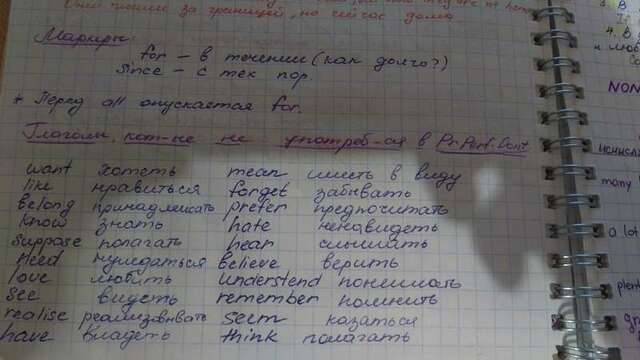 Они за границей, но сейчас дома
Маркеры:
for – в течении (как долго?)
since – с тех пор.
* Перед all опускается for.
Глаголы, кот-ые не употреб-ся в Pr.Perf.Cont
want хотеть mean иметь в виду
like нравиться forget забывать
belong принадлежать prefer предпочитать
know знать hate ненавидеть
suppose полагать hear слышать
need нуждаться believe верить
love любить understand понимать
see видеть remember помнить
realise реализовывать seem казаться
have владеть think полагать
3. В
и люб
NON
many
a lot
plent